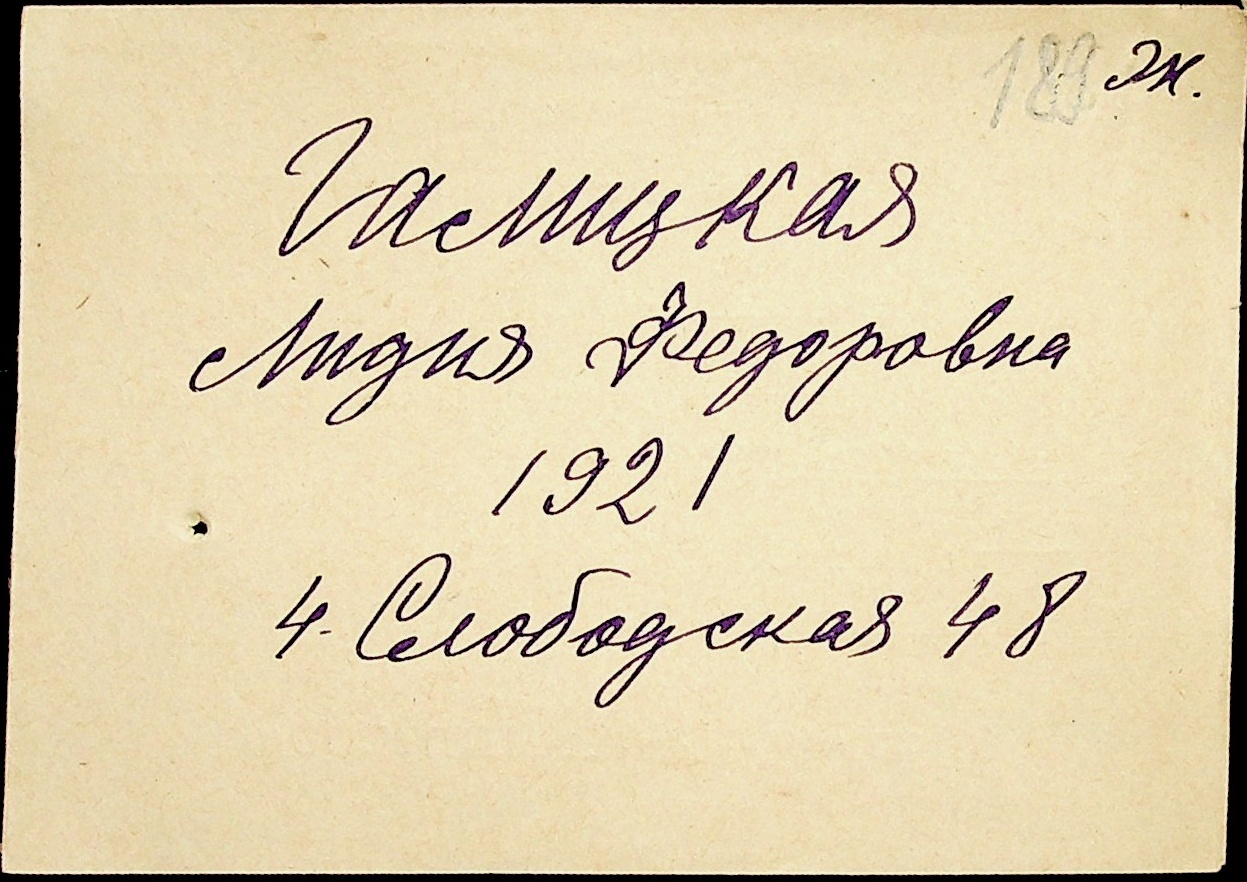 189 эк.
Галицкая
Лидия Федоровна
1921
4. Слободская 48